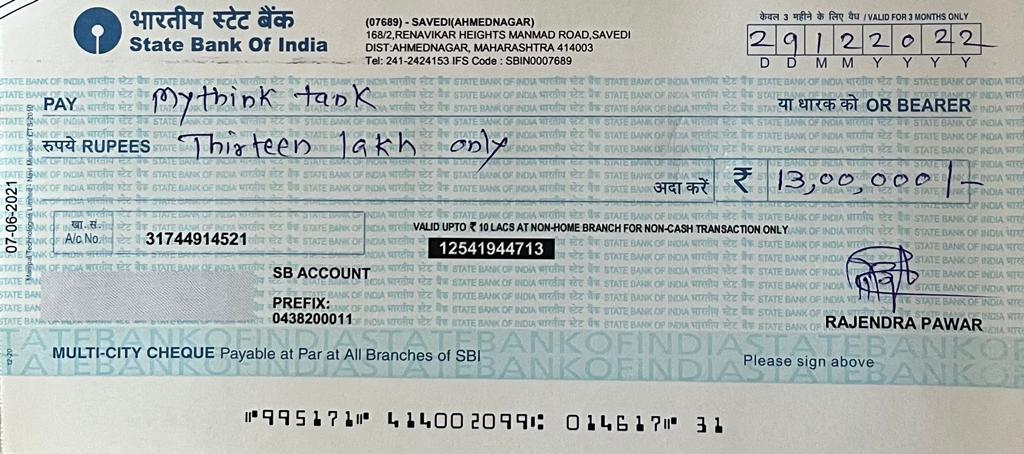 भारतीय स्टेट बैंक
State Bank Of India
(07689) - SAVEDI(AHMEDNAGAR)
168/2,RENAVIKAR HEIGHTS MANMAD ROAD,SAVEDI
DIST:AHMEDNAGAR, MAHARASHTRA 414003
Tel: 241-2424153 IFS Code : SBIN0007689
केवल 3 महीने के लिए वैध / VALID FOR 3 MONTHS ONLY
29122022
D D M M Y Y Y Y
PAY Mythink tank या धारक को OR BEARER
रुपये RUPEES Thirteen lakh only
अदा करें ₹ 13,00,000/-
07-06-2021
खा. सं.
A/c No. 31744914521
VALID UPTO ₹ 10 LACS AT NON-HOME BRANCH FOR NON-CASH TRANSACTION ONLY
12541944713
SB ACCOUNT
PREFIX:
0438200011
RAJENDRA PAWAR
MULTI-CITY CHEQUE Payable at Par at All Branches of SBI
Please sign above
STATE BANK OF INDIA
⑈995171⑈ 414002099⑆ 014617⑈ 31